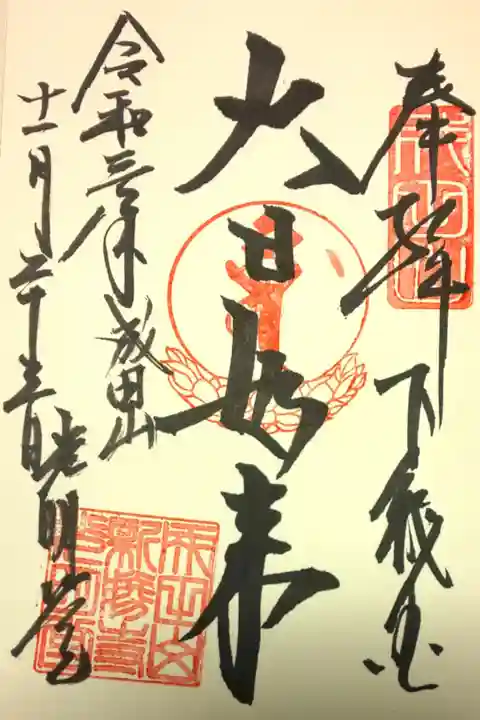 奉拝 下総国
成田山
大日如来
令和三年 成田山
十一月二十三日 光明堂
成田山
新勝寺